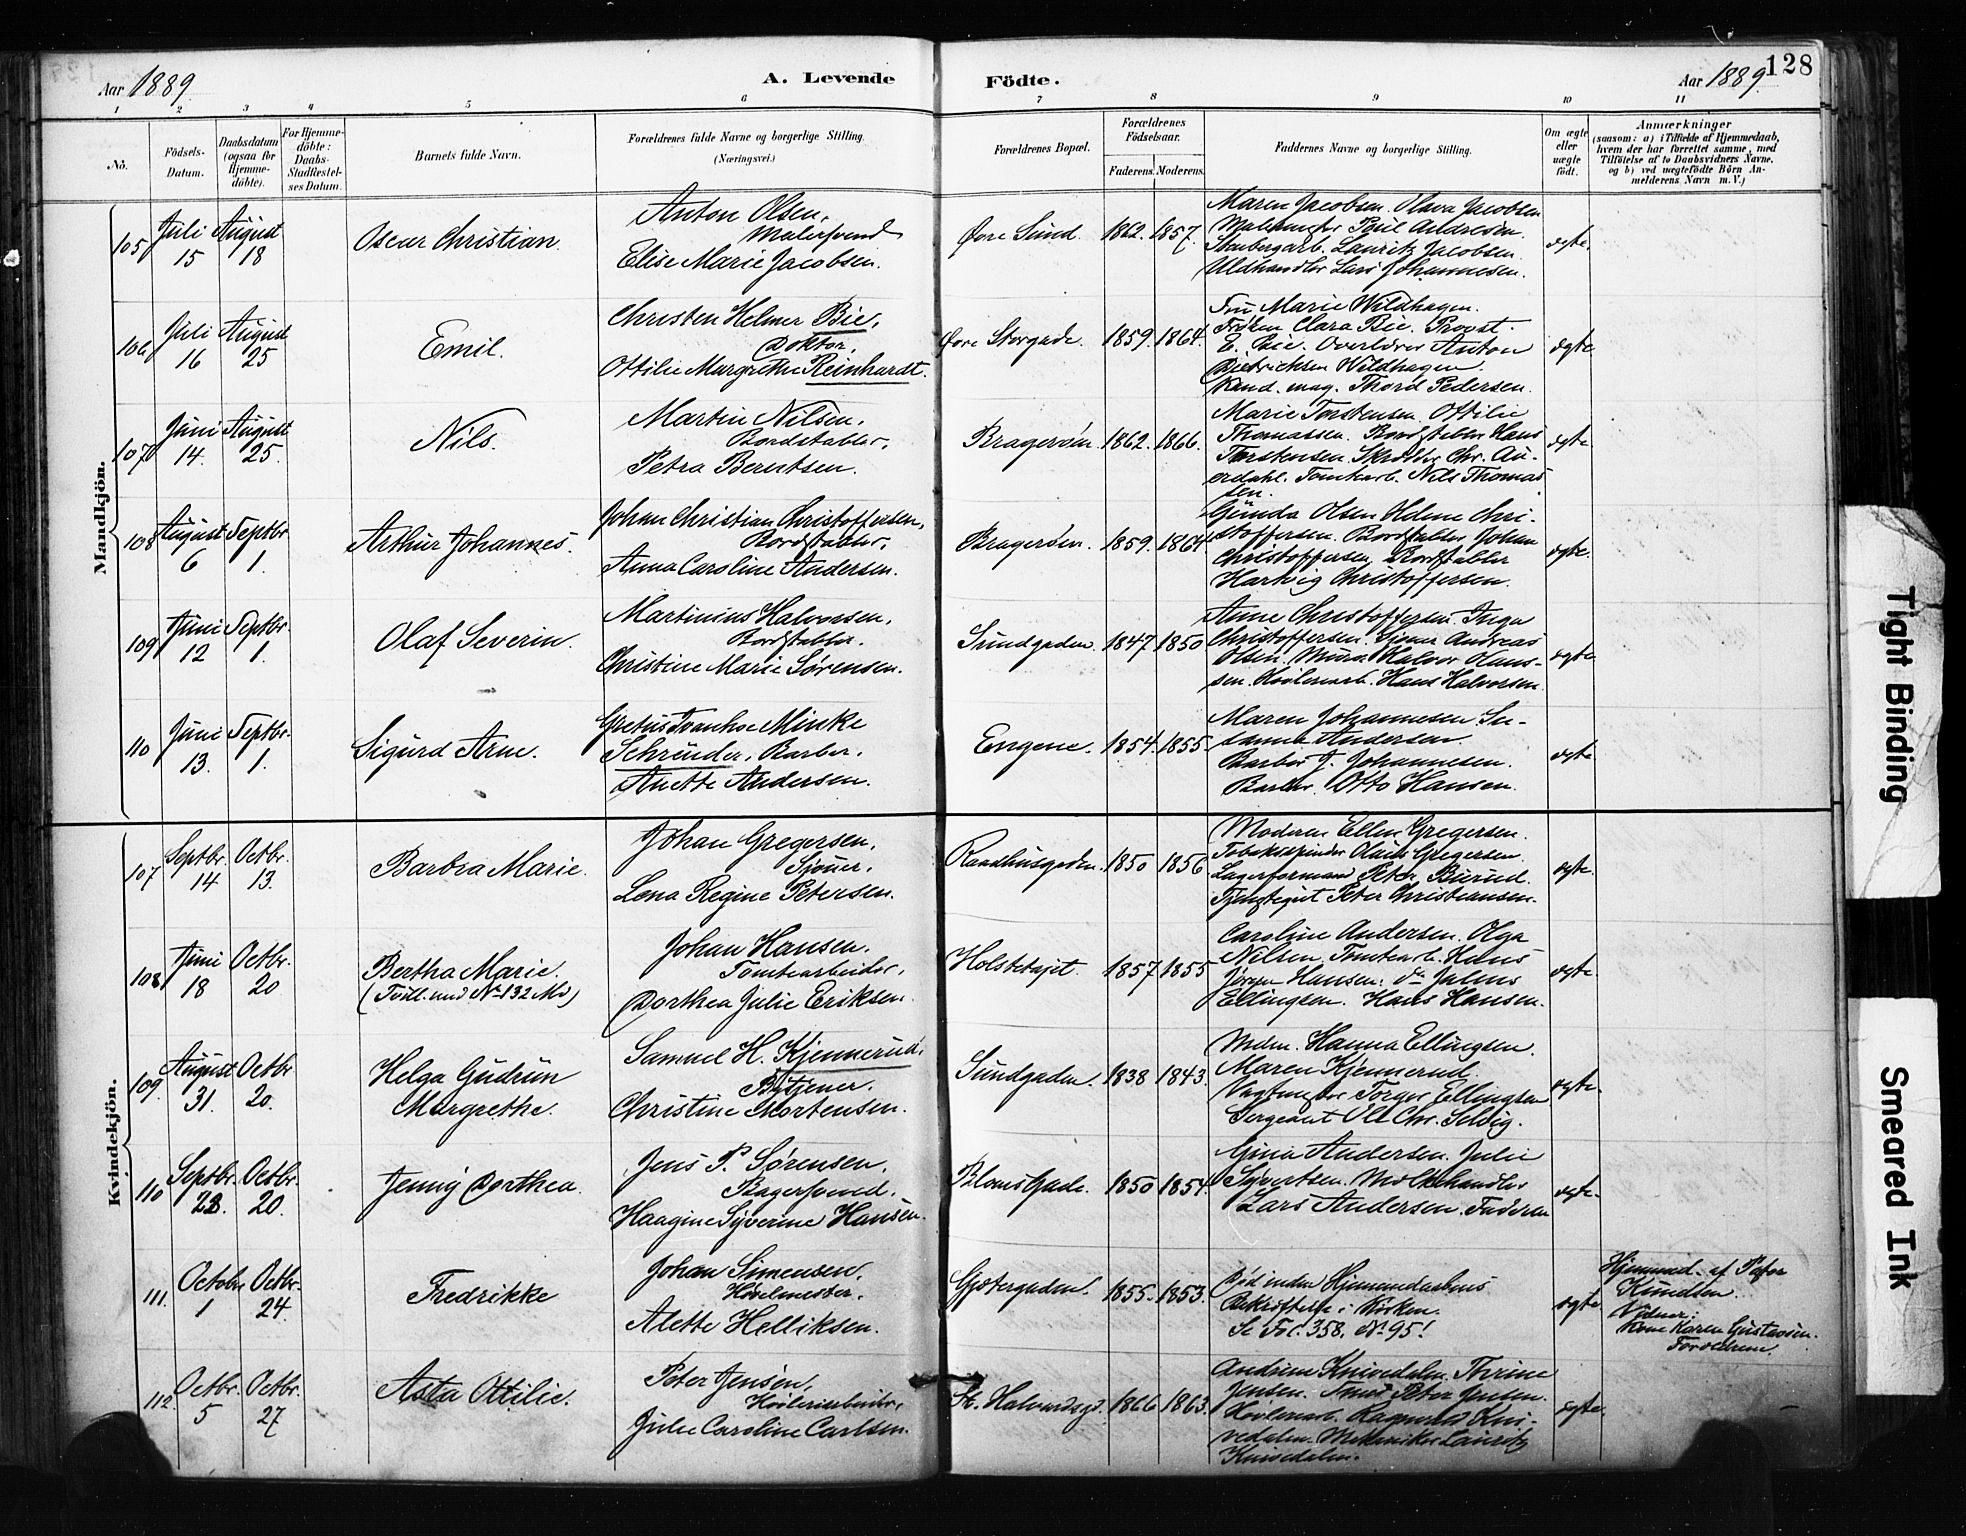 128
Aar 1889
A. Levende
Födte.
Aar 1889
1 2 3 4 5 6 7 8 9 10 11
No.
Födsels-Datum.
Daabsdatum (ogsaa for Hjemme-döbte).
For Hjemme-döbte: Daabs-Stadfæstel-ses Datum.
Barnets fulde Navn.
Forældrenes fulde Navne og borgerlige Stilling (Næringsvei.)
Forældrenes Bopæl.
Forældrenes Födselsaar.
Faderens. Moderens.
Faddernes Navne og borgerlige Stilling.
Om ægte eller uægte födt.
Anmærkninger
(saasom: a) i Tilfælde af Hjemmedaab, hvem der har forrettet samme, med Tilföielse af to Daabsvidners Navne, og b) ved uægtefödte Börn An-melderens Navn m. V.)
Mandkjön.
105 Juli 15 August 18 Oscar Christian. Anton Olsen, Malersvend Elise Marie Jacobsen. Øvre Sund. 1862. 1857.
Maren Jacobsen. Olava Jacobsen
Malermester Paul Andresen.
Stenbergarb. Lauritz Jacobsen
Uldhandler Lars Johannesen.
ægte.
106 Juli 16 August 25 Emil. Christen Helmer Bie, Doktor, Ottilie Margrethe Reinhardt. Øvre Storgade. 1859. 1864.
Fru Marie Wildhagen.
Frøken Clara Bie. Provst
E. Bie. Overlærer Anton
Dietrichsen Wildhagen.
Kand. mag. Thord Pedersen.
ægte
107 Juni 14. August 25. Nils. Martin Nilsen, Bordstabler, Petra Berntsen. Bragerøen. 1862. 1866.
Marie Torstensen. Ottilie
Thomassen. Bordstabler Hans
Torstensen. Skrædder Chr. Au-
erdahl. Tomtearb. Nils Thomas
sen.
ægte
108 August 6 Septbr. 1. Arthur Johannes. Johan Christian Christoffersen, Bordstabler, Anna Caroline Andersen. Bragerøen. 1859. 1864
Gunda Olsen Helene Chri-
stoffersen. Bordstabler Johan
Christoffersen Bordstabler
Hartvig Christoffersen.
ægte.
109 Juni 12 Septbr. 1. Olaf Severin. Martinius Halvorsen, Bordstabler. Christine Marie Sørensen. Sundgaden. 1847 1850
Anne Christoffersen. Inga
Christoffersen. Sjømd Andreas
Olsen. Murer Halvor Olaus-
sen. Høvleriarb. Hans Halvorsen.
ægte
110 Juni 13. Septbr. 1. Sigurd Arne. Gretus Ivanhoe Minke Schrüder, Barber, Anette Andersen. Engene. 1854. 1855.
Maren Johannesen Su-
sanna Andersen.
Barber J. Johannesen.
Barber Otto Hansen.
ægte
Kvindekjön.
107 Septbr. 14 Octbr. 13. Barbra Marie. Johan Gregersen, Sjøuer, Lena Regine Petersen. Raadhusgaden. 1850 1856
Moderen Ellen Gregersen.
Tobakspinder Olaus Gregersen.
Lagerformand Peter Buerud.
Tjenstegut Peter Christiansen.
ægte.
108 Juni 18 Octbr. 20 Bertha Marie. (Tvill. med No 132 M.) Johan Hansen, Tomtearbeider, Dorthea Julie Eriksen. Holstetajet. 1857 1855
Caroline Andersen. Olga
Nilsen. Tomtearb. Hans
Jørgen Hansen. do Julius
Ellingsen. Hans Hansen.
ægte.
109. August 31. Octbr 20. Helga Gudrun Margrethe. Samuel H. Kjennerud, Bytjener. Christine Mortensen. Sundgaden. 1838 1843.
Moderen. Hanna Ellingsen.
Maren Kjennerud.
Vagtmester Torger Ellingsen
Sergeant Ole Chr. Solvig.
ægte.
110 Septbr. 22. Octbr. 20. Jenny Dorthea. Jens P. Sørensen, Bagersvend. Haagine Syverine Hansen. BlomsGade. 1850 1854.
Gina Andersen. Julie
Syvertsen. Melkehandler
Lars Andersen. Faderen
ægte.
111. October 1 Octbr. 24. Fredrikke Johan Simensen, Høvlemester, Alette Helliksen. Gjætergaden. 1855. 1853.
Død inden Hjemmedaabens
Bekræftelse i Kirken.
Se Fol. 358. No 95!
ægte.
Hjemmed. af Pastor
Knudsen.
Vidner:
Kone Karen Gustavsen.
Forældrene.
112. Octbr. 5 Octbr. 27 Asta Ottilie. Peter Jensen, Høvleriarbeider, Julie Caroline Carlsen. St. Halvardsgd. 1866 1863.
Andrine Knivedalen. Thrine
Jensen. Peter Jensen.
Høvleriarb. Ragnvald Kni-
vedalen. Mekaniker Lauritz
Knivedalen.
ægte.
Tight Binding
Smeared Ink